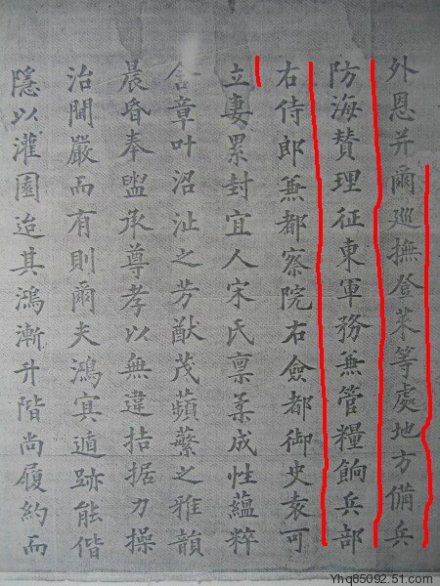 外恩并爾巡撫登萊等處地方備兵
防海贊理征東軍務兼管糧餉兵部
右侍郎兼都察院右僉都御史袁可
立妻累封宜人宋氏禀柔成性蘊粹
含章叶沼沚之芳猷茂蘋蘩之雅韻
晨昏奉盥承尊孝以無違拮据力操
治閫嚴而有則爾夫鴻寘遁跡能偕
隱以灌園迨其鴻漸升階尚履約而
Yhq65092.51.com